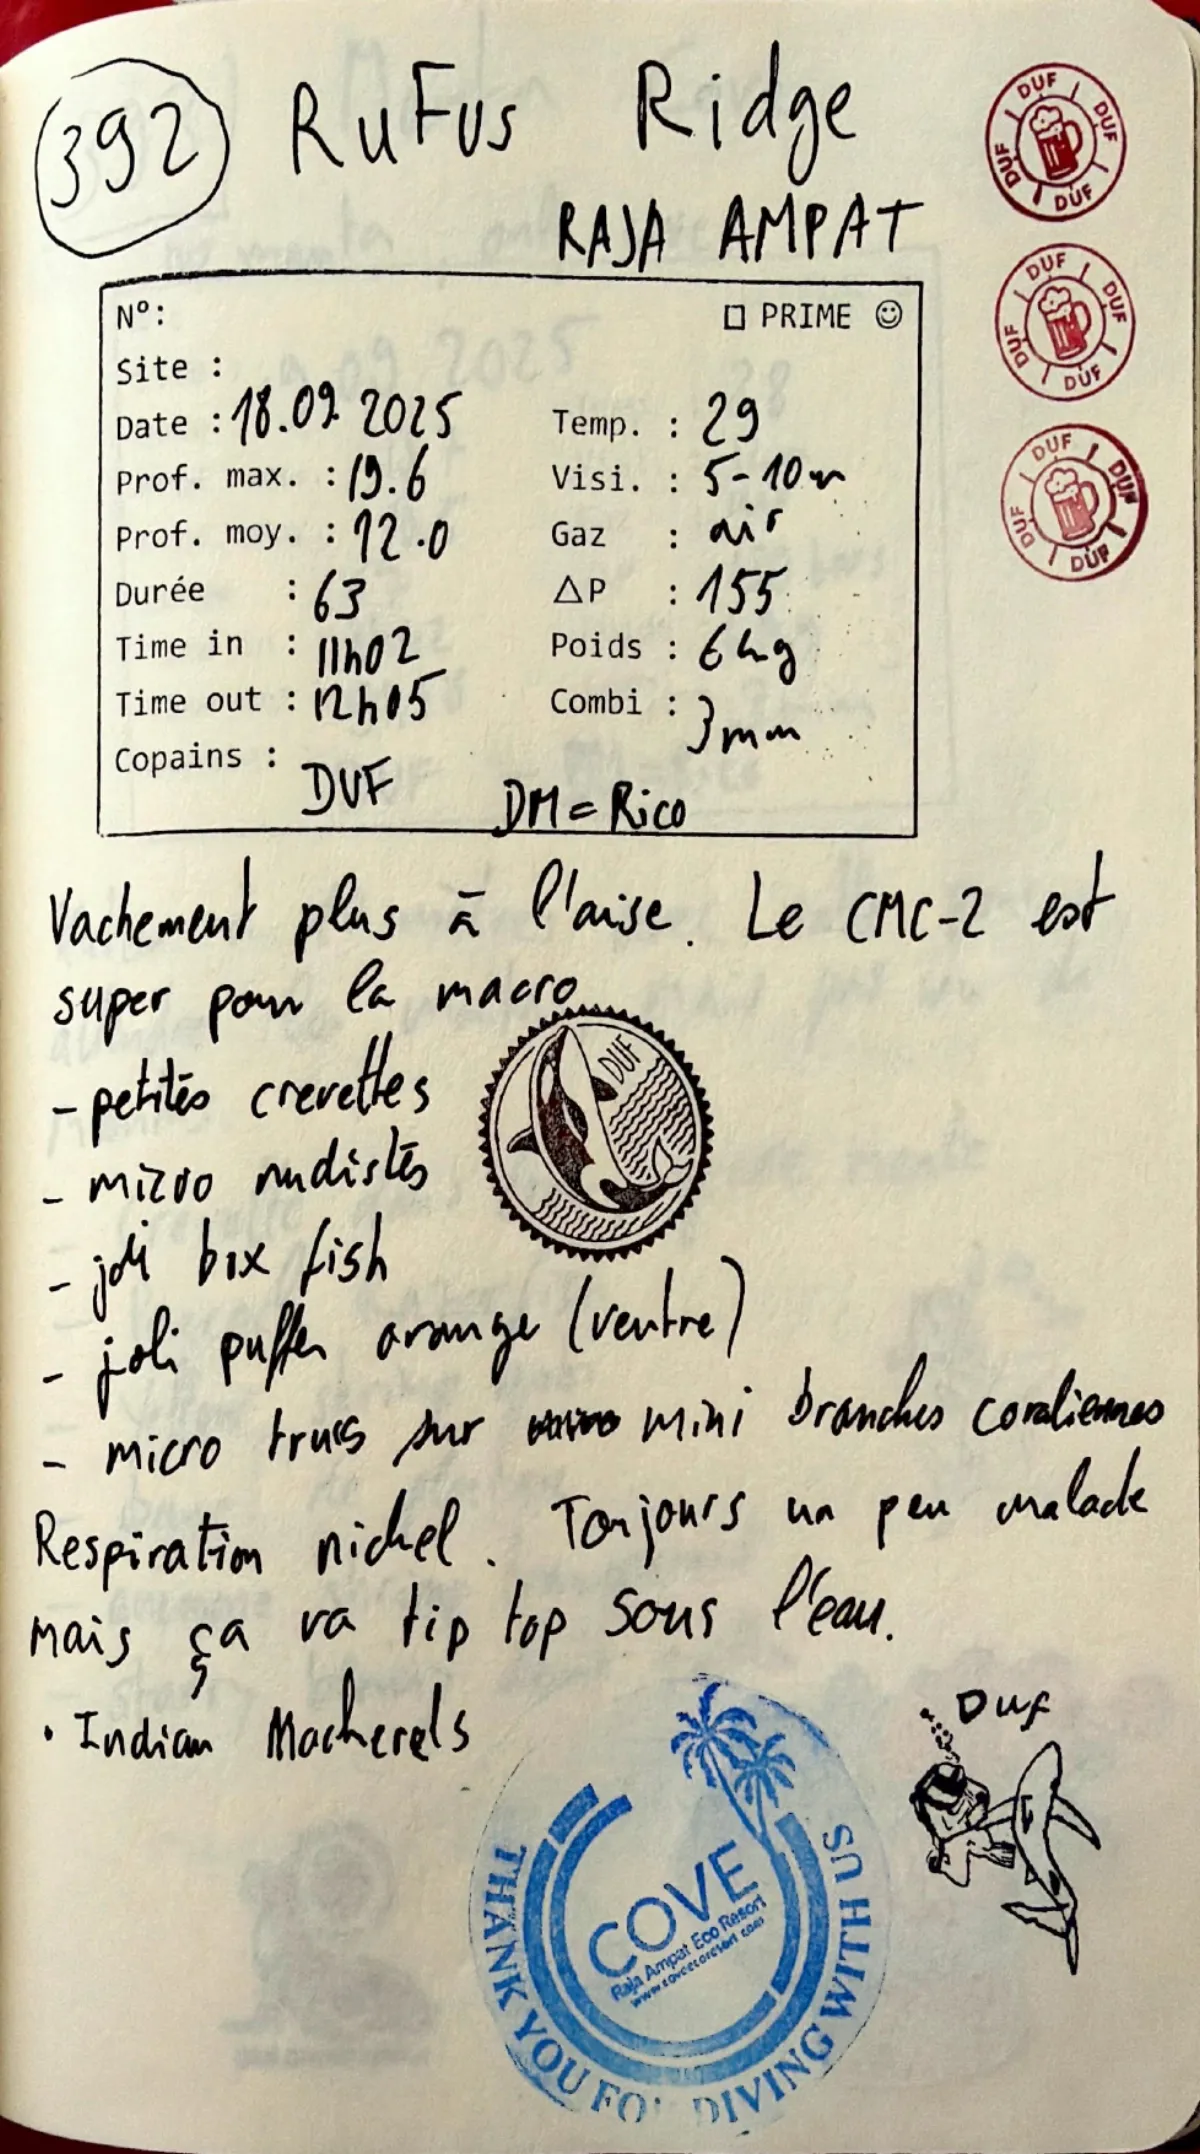 392 RuFus Ridge
RAJA AMPAT
DUF DUF DUF DUF
DUF DUF DUF DUF
DUF DUF DUF DUF
N°: □ PRIME ☺
Site :
Date : 18.09 2025 Temp. : 29
Prof. max. : 19.6 Visi. : 5-10m
Prof. moy. : 12.0 Gaz : air
Durée : 63 ΔP : 155
Time in : 11h02 Poids : 6kg
Time out : 12h05 Combi : 3mm
Copains : DUF DM = Rico
Vachement plus à l'aise. Le CMC-2 est
super pour la macro
- petites crevettes
DUF
- micro nudistes
- joli box fish
- joli puffer orange (ventre)
- micro trucs sur mini branches coraliennes
Respiration nickel. Toujours un peu malade
mais ça va tip top sous l'eau.
• Indian Mackerels
Duf
COVE
Raja Ampat Eco Resort
www.coveecoresort.com
THANK YOU FO DIVING WITH US